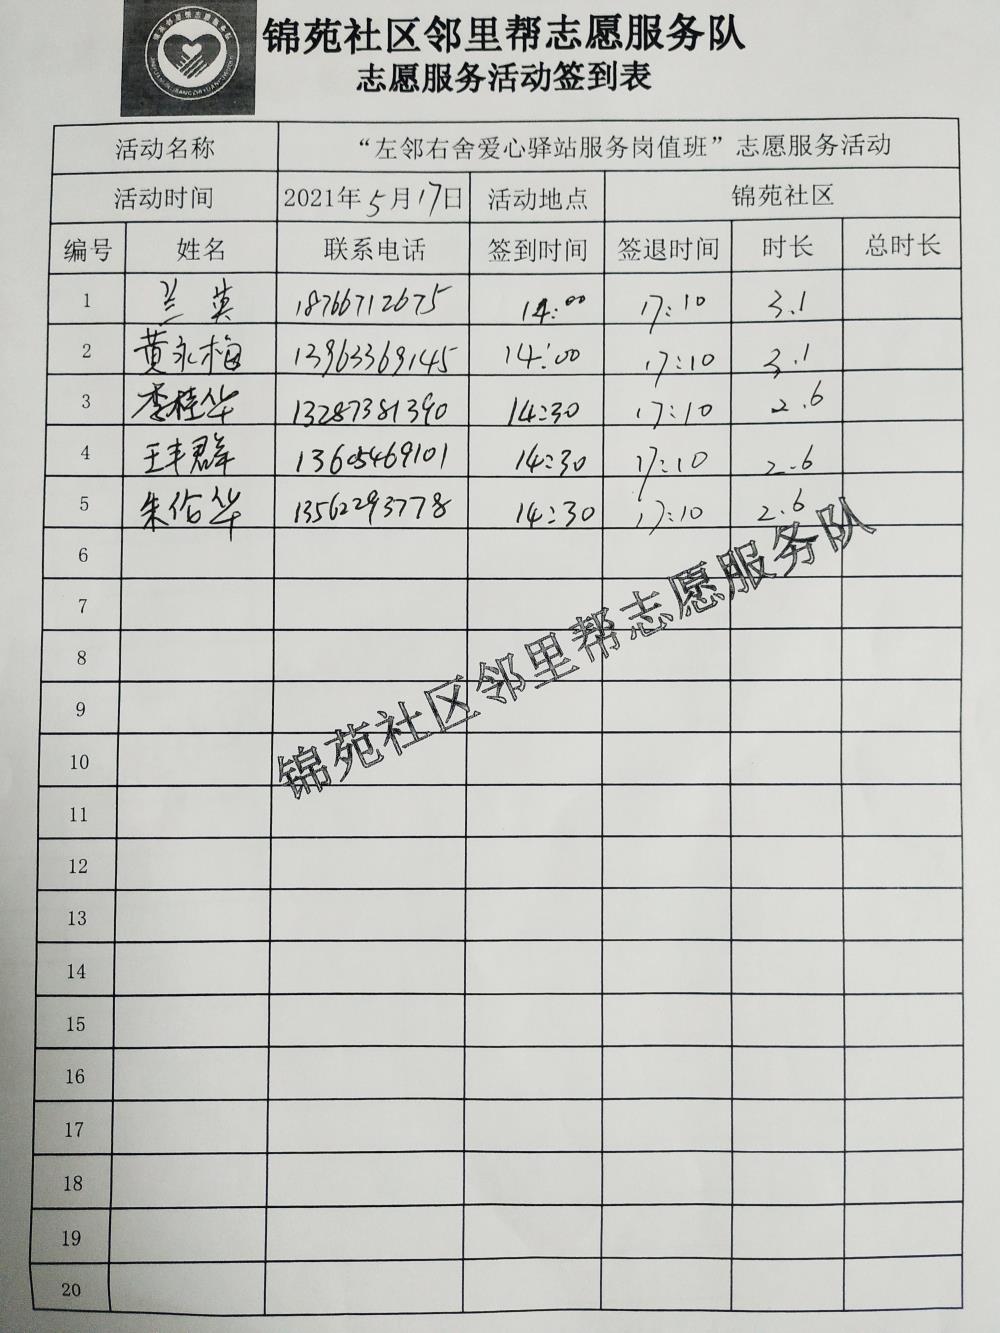 锦苑社区邻里帮志愿服务队
志愿服务活动签到表
活动名称 “左邻右舍爱心驿站服务岗值班”志愿服务活动
活动时间 2021年5月17日 活动地点 锦苑社区
编号 姓名 联系电话 签到时间 签退时间 时长 总时长
1 兰英 18766712675 14:00 17:10 3.1
2 黄永梅 13963369145 14:00 17:10 3.1
3 李桂华 13287381390 14:30 17:10 2.6
4 王丰群 13605469101 14:30 17:10 2.6
5 朱伦华 13562293778 14:30 17:10 2.6
6
7
8
9
10
11
12
13
14
15
16
17
18
19
20
锦苑社区邻里帮志愿服务队